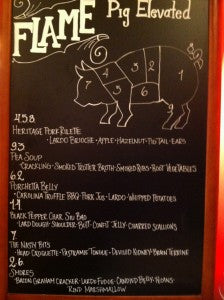 FLAME
Pig Elevated
1 2 3 4 5 6 7
4.5.8
Heritage Pork Rillette
·Lardo Brioche ·Apple ·Hazelnut ·Pig Tail ·Ears
9.3
Pea Soup
·Crackling ·Smoked Trotter Broth ·Smoked Ribs ·Root Vegetables
6.2
Porchetta Belly
·Carolina Truffle BBQ ·Pork Jus ·Lardo ·Whipped Potatoes
1.4
Black Pepper Char Siu Bao
·Lard Dough ·Shoulder ·Butt ·Confit Jelly ·Charred Scallions
7
The Nasty Bits
·Head Croquette ·Pastrami Tongue ·Deviled Kidney ·Brain Terrine
2.6
Smores
·Bacon Graham Cracker ·Lardo Fudge ·Candied Belly
Rind Marshmallow